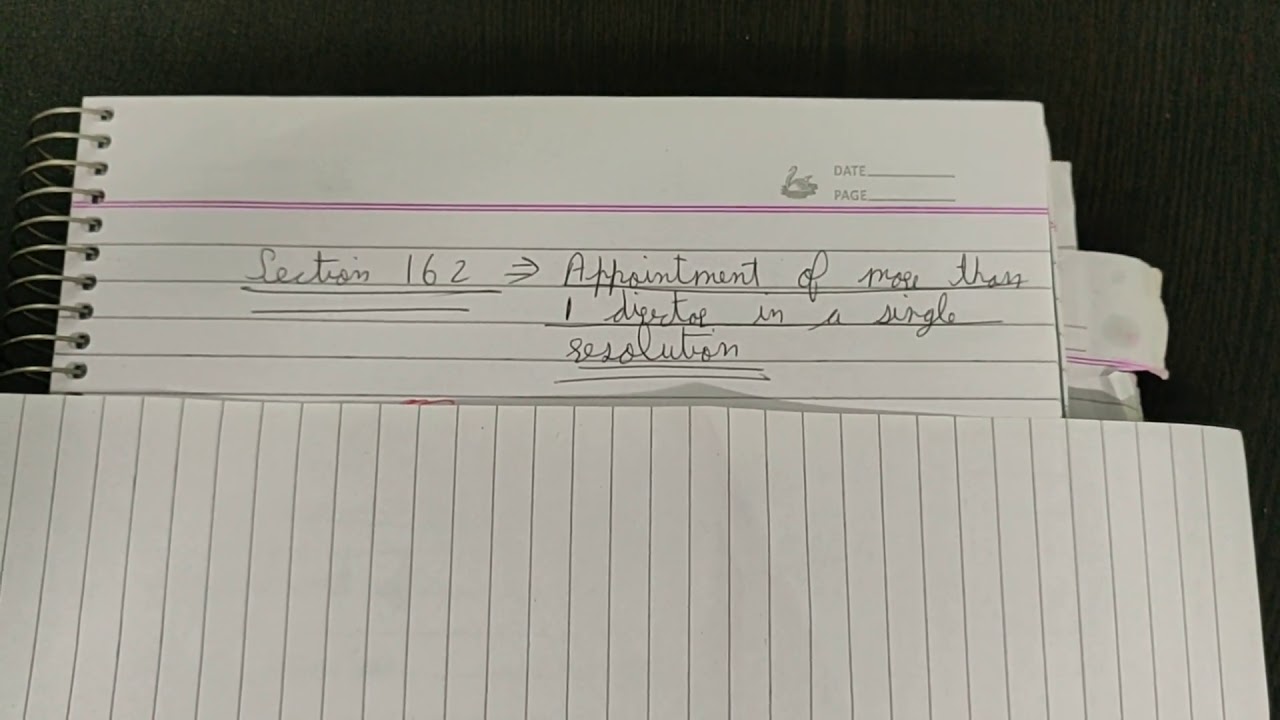 DATE
PAGE
Section 162 ⇒ Appointment of more than
1 director in a single
resolution